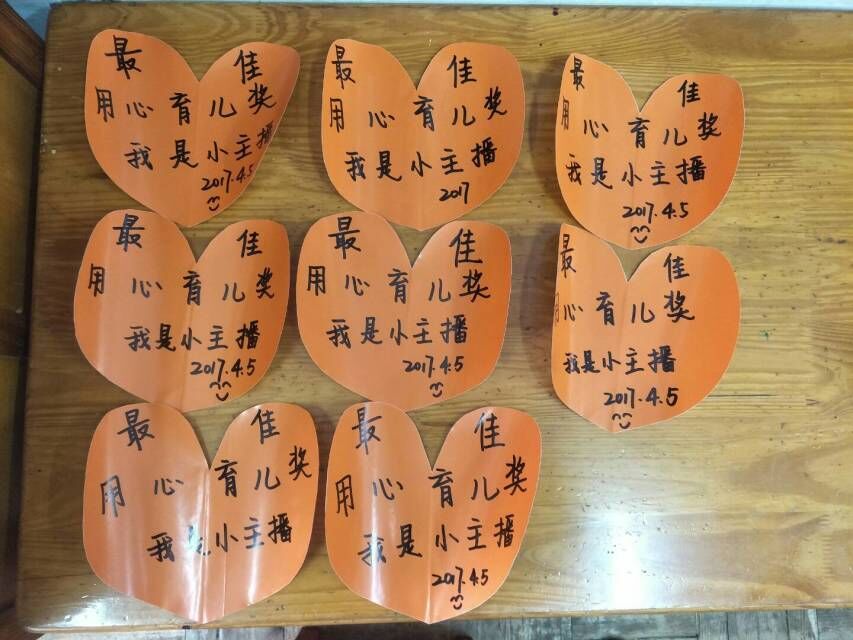 最 佳
用心育儿奖
我是小主播
2017.4.5
最 佳
用心育儿奖
我是小主播
2017
最 佳
用心育儿奖
我是小主播
2017.4.5
最 佳
用心育儿奖
我是小主播
2017.4.5
最 佳
用心育儿奖
我是小主播
2017.4.5
最 佳
用心育儿奖
我是小主播
2017.4.5
最 佳
用心育儿奖
我是小主播
最 佳
用心育儿奖
我是小主播
2017.4.5